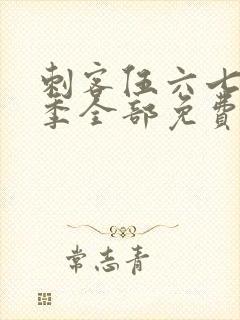 刺客伍六七
季全部免費
常志青